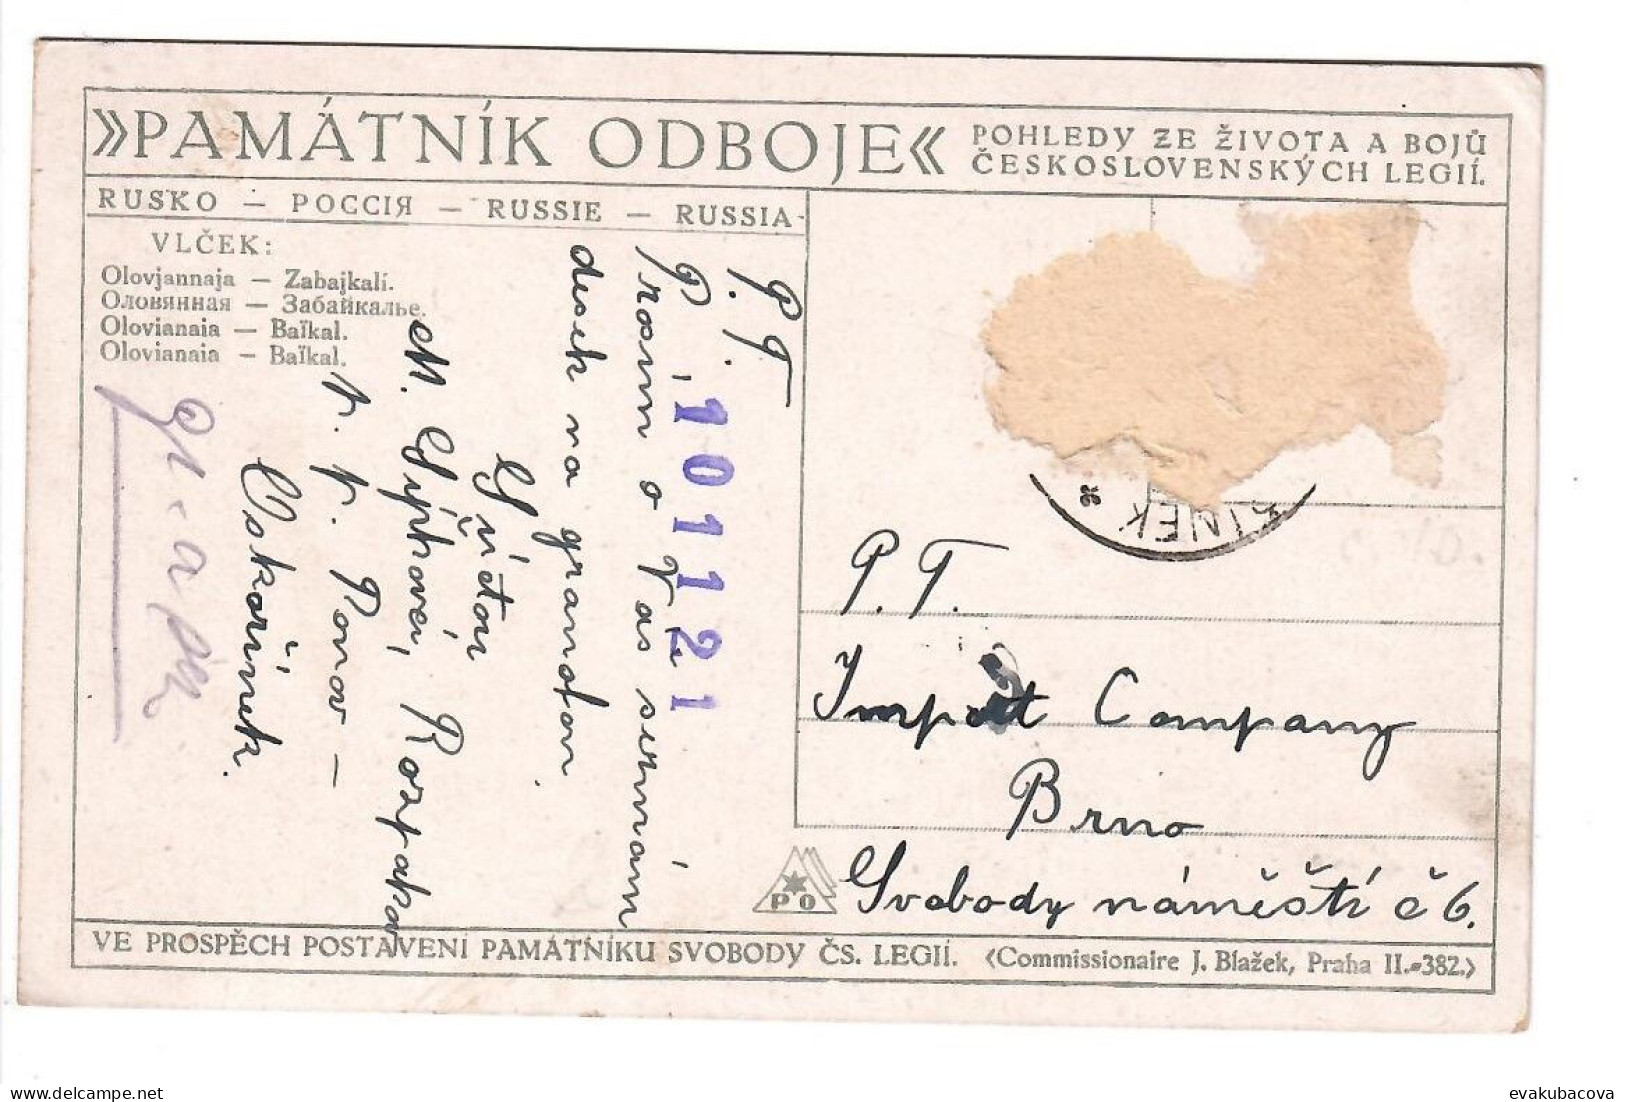 »PAMÁTNÍK ODBOJE«
POHLEDY ZE ŽIVOTA A BOJŮ
ČESKOSLOVENSKÝCH LEGIÍ.
RUSKO — РОССІЯ — RUSSIE — RUSSIA
VLČEK:
Olovjannaja — Zabajkalí.
Оловянная — Забайкалье.
Olovianaia — Baïkal.
Olovianaia — Baïkal.
P. T.
Prosím o Váš seznam
desek na gramofon
M. Rozpakov
p. p. Ronov —
Oskořínek.
101121
ŘINEK
P. T.
Import Company
Brno
Svobody náměstí č 6.
P O
VE PROSPĚCH POSTAVENÍ PAMÁTNÍKU SVOBODY ČS. LEGIÍ. (Commissionaire J. Blažek, Praha II.-382.)
evakubacova